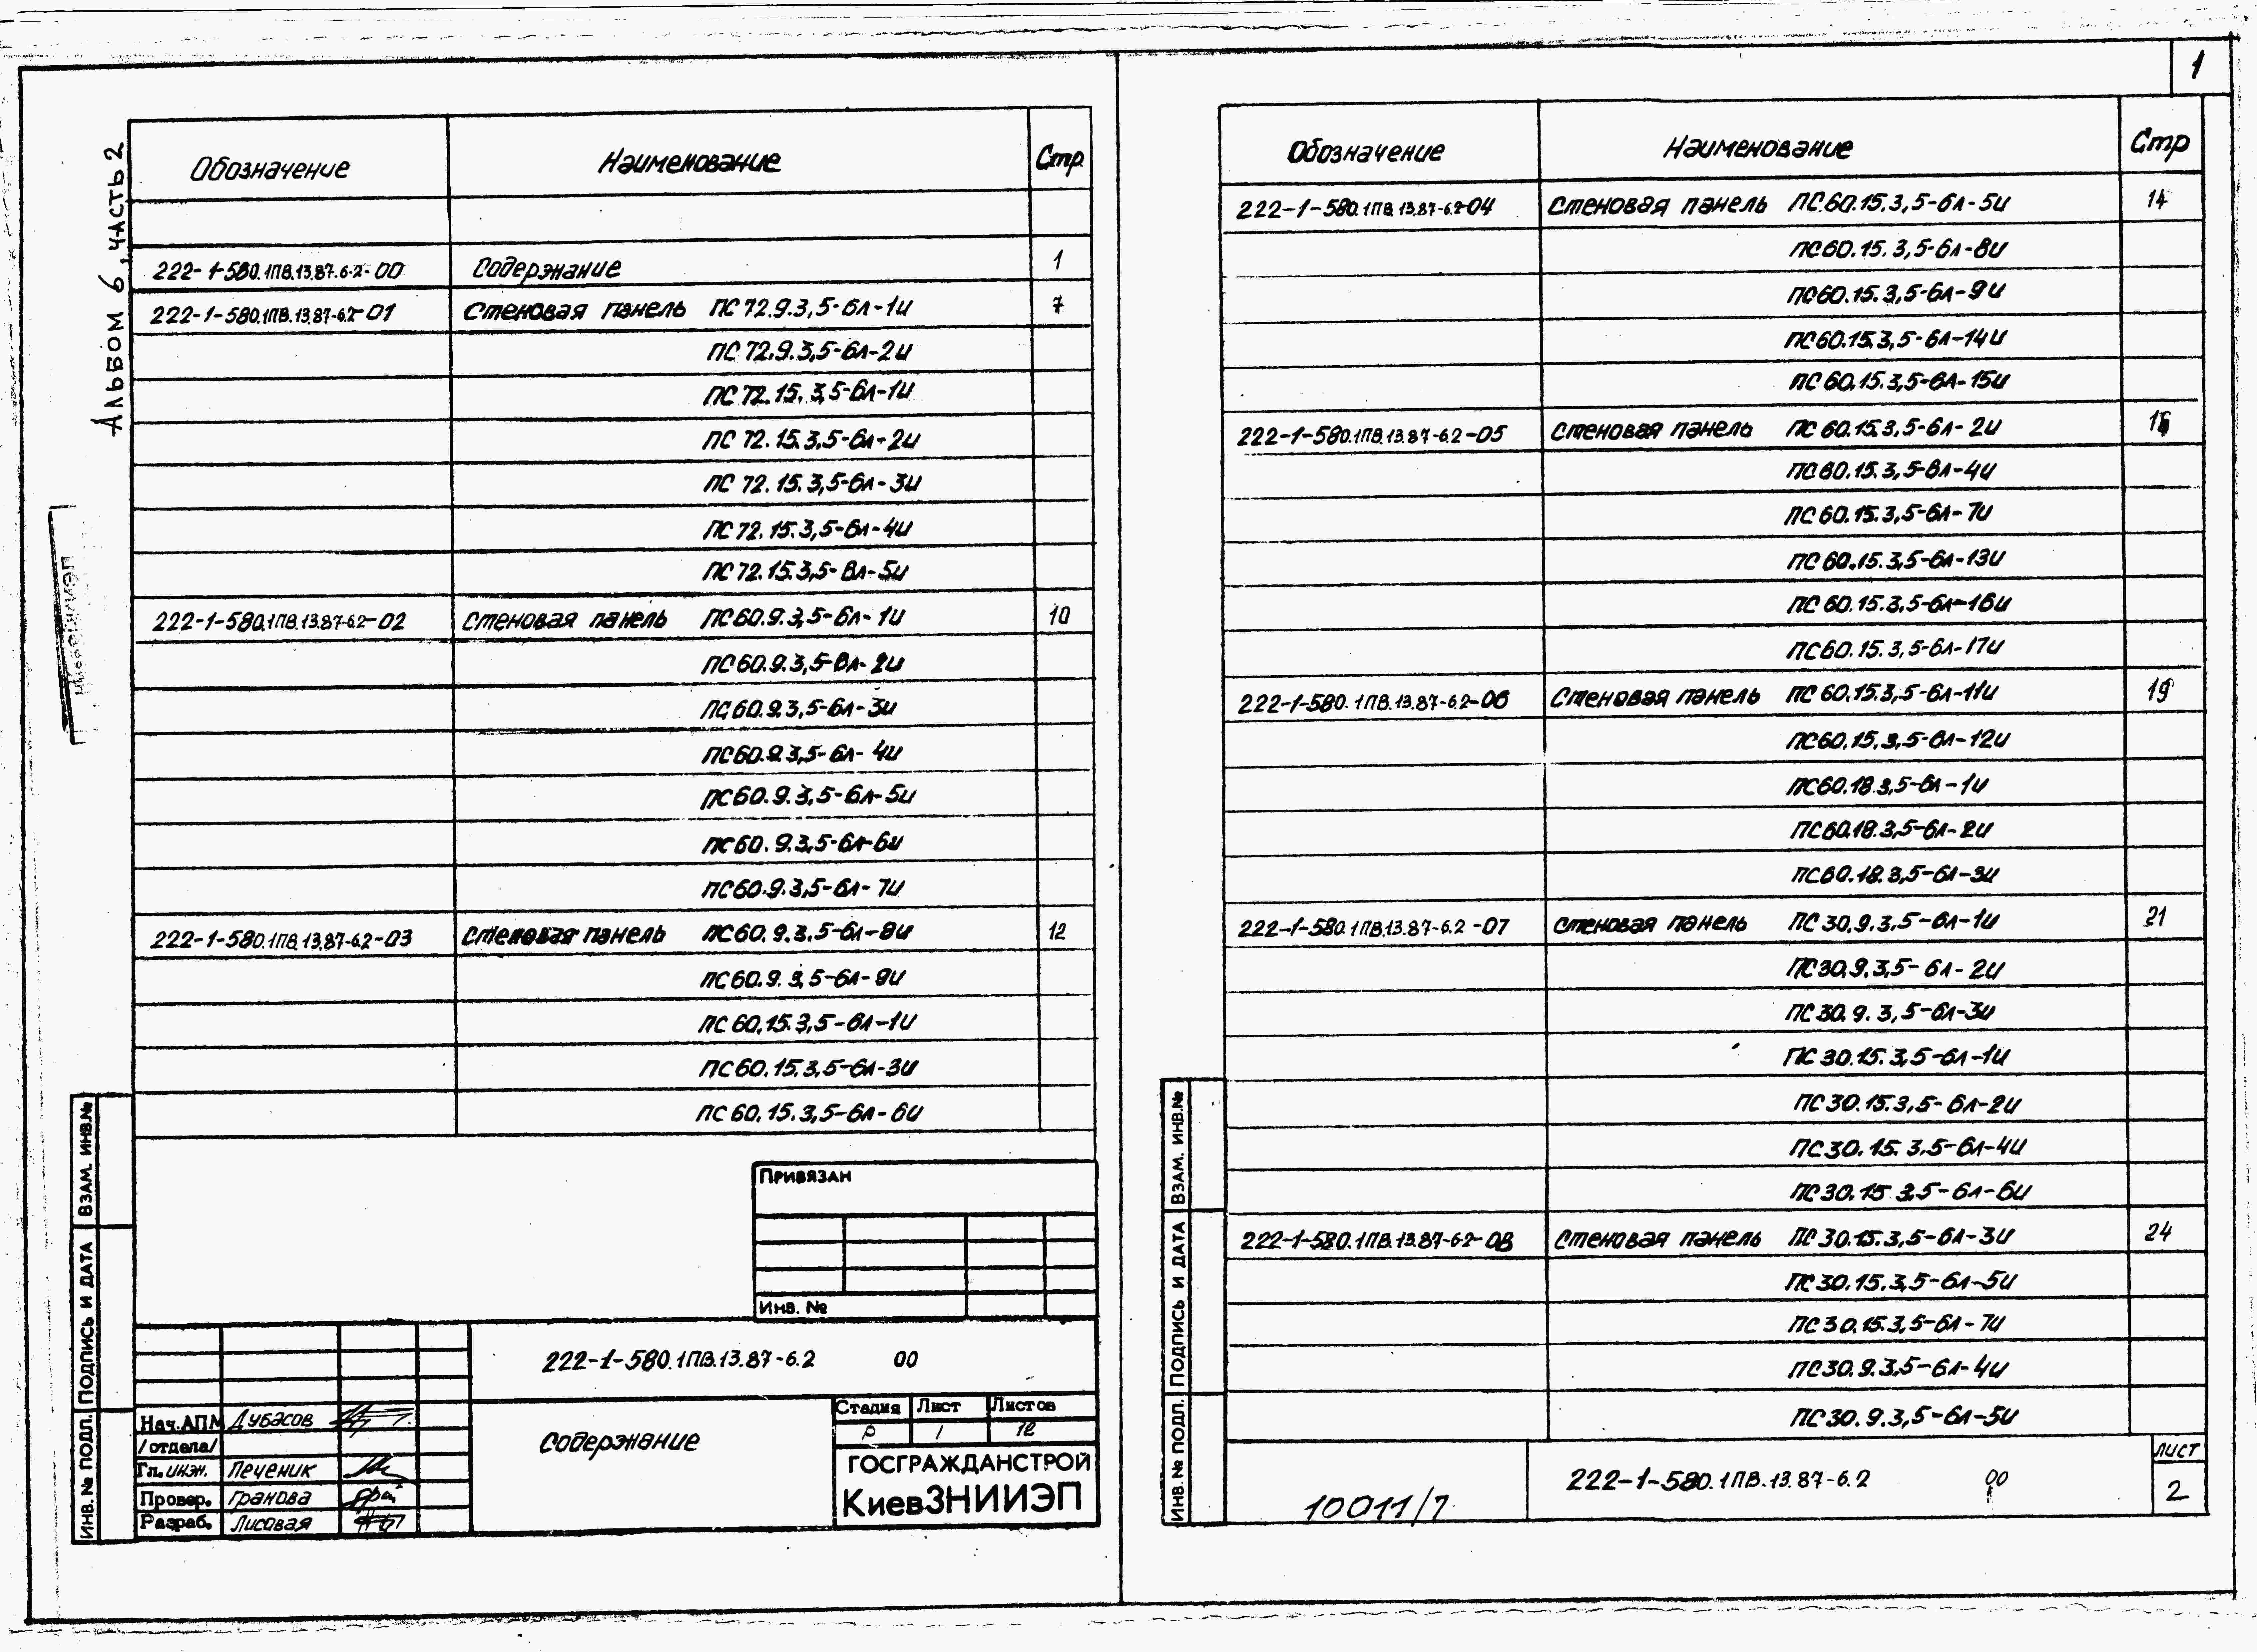 1
Альбом 6, часть 2
Обозначение Наименование Стр.
222-1-580.1ПВ.13.87.6-2-00 Содержание 1
222-1-580.1ПВ.13.87-6.2-01 Стеновая панель ПС 72.9.3,5-6л-1и 7
ПС 72.9.3,5-6л-2и
ПС 72.15.3,5-6л-1и
ПС 72.15.3,5-6л-2и
ПС 72.15.3,5-6л-3и
ПС 72.15.3,5-6л-4и
ПС 72.15.3,5-6л-5и
222-1-580.1ПВ.13.87-6.2-02 Стеновая панель ПС60.9.3,5-6л-1и 10
ПС60.9.3,5-6л-2и
ПС60.9.3,5-6л-3и
ПС60.9.3,5-6л-4и
ПС60.9.3,5-6л-5и
ПС60.9.3,5-6л-6и
ПС60.9.3,5-6л-7и
222-1-580.1ПВ.13.87-6.2-03 Стеновая панель ПС60.9.3.5-6л-8и 12
ПС60.9.3,5-6л-9и
ПС60.15.3,5-6л-1и
ПС60.15.3,5-6л-3и
ПС60.15.3,5-6л-6и
Привязан
Инв. №
222-1-580.1ПВ.13.87-6.2 00
Содержание
Стадия Лист Листов
Р 1 12
ГОСГРАЖДАНСТРОЙ
КиевЗНИИЭП
Нач.АПМ Дубасов
/отдела/
Гл. инж. Печеник
Провер. Гранова
Разраб. Лисовая
ИНВ. № ПОДЛ. ПОДПИСЬ И ДАТА ВЗАМ. ИНВ.№
Обозначение Наименование Стр
222-1-580.1ПВ.13.87-6.2-04 Стеновая панель ПС.60.15.3,5-6л-5и 14
ПС60.15.3,5-6л-8и
ПС60.15.3,5-6л-9и
ПС60.15.3,5-6л-14и
ПС60.15.3,5-6л-15и
222-1-580.1ПВ.13.87-6.2-05 Стеновая панель ПС 60.15.3,5-6л-2и
ПС60.15.3,5-6л-4и
ПС60.15.3,5-6л-7и
ПС60.15.3,5-6л-13и
ПС60.15.3,5-6л-16и
ПС60.15.3,5-6л-17и
222-1-580.1ПВ.13.87-6.2-06 Стеновая панель ПС 60.15.3,5-6л-11и 19
ПС60.15.3,5-6л-12и
ПС60.18.3,5-6л-1и
ПС60.18.3,5-6л-2и
ПС60.18.3,5-6л-3и
222-1-580.1ПВ.13.87-6.2-07 Стеновая панель ПС30.9.3,5-6л-1и 21
ПС30.9.3,5-6л-2и
ПС30.9.3,5-6л-3и
ПС30.15.3,5-6л-1и
ПС30.15.3,5-6л-2и
ПС30.15.3,5-6л-4и
ПС30.15.3,5-6л-6и
222-1-580.1ПВ.13.87-6.2-08 Стеновая панель ПС30.15.3,5-6л-3и 24
ПС30.15.3,5-6л-5и
ПС30.15.3,5-6л-7и
ПС30.9.3,5-6л-4и
ПС30.9.3,5-6л-5и
10011/7
222-1-580.1ПВ.13.87-6.2 00
Лист
2
ИНВ. № ПОДЛ. ПОДПИСЬ И ДАТА ВЗАМ. ИНВ.№